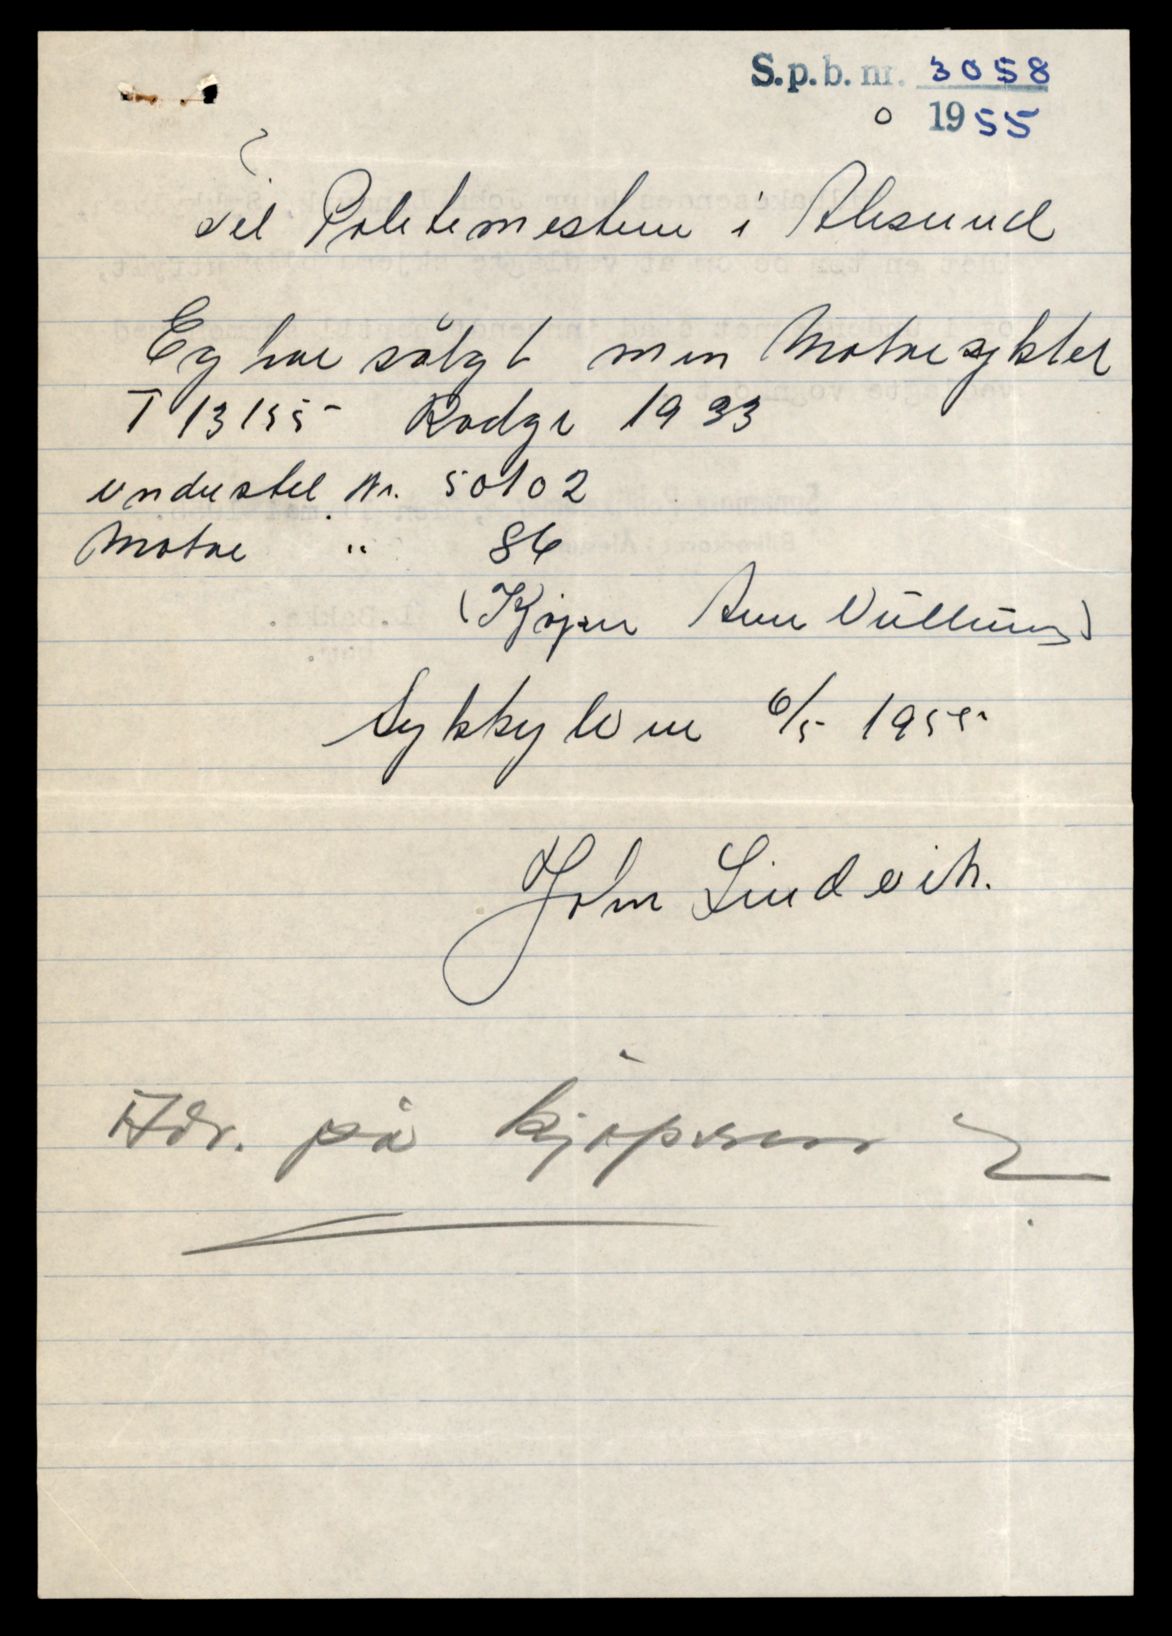 S.p.b. nr. 3058
1955
Til Politimesteren i Ålesund
Eg har sålgt min Motorsykkel
T 13155 Rodge 1933
understel Nr. 50102
Motor " 86
(Kjøper Arne Vullum)
Sykkylven 6/5 1955
John Lindvik.
Adr. på kjøperen ?